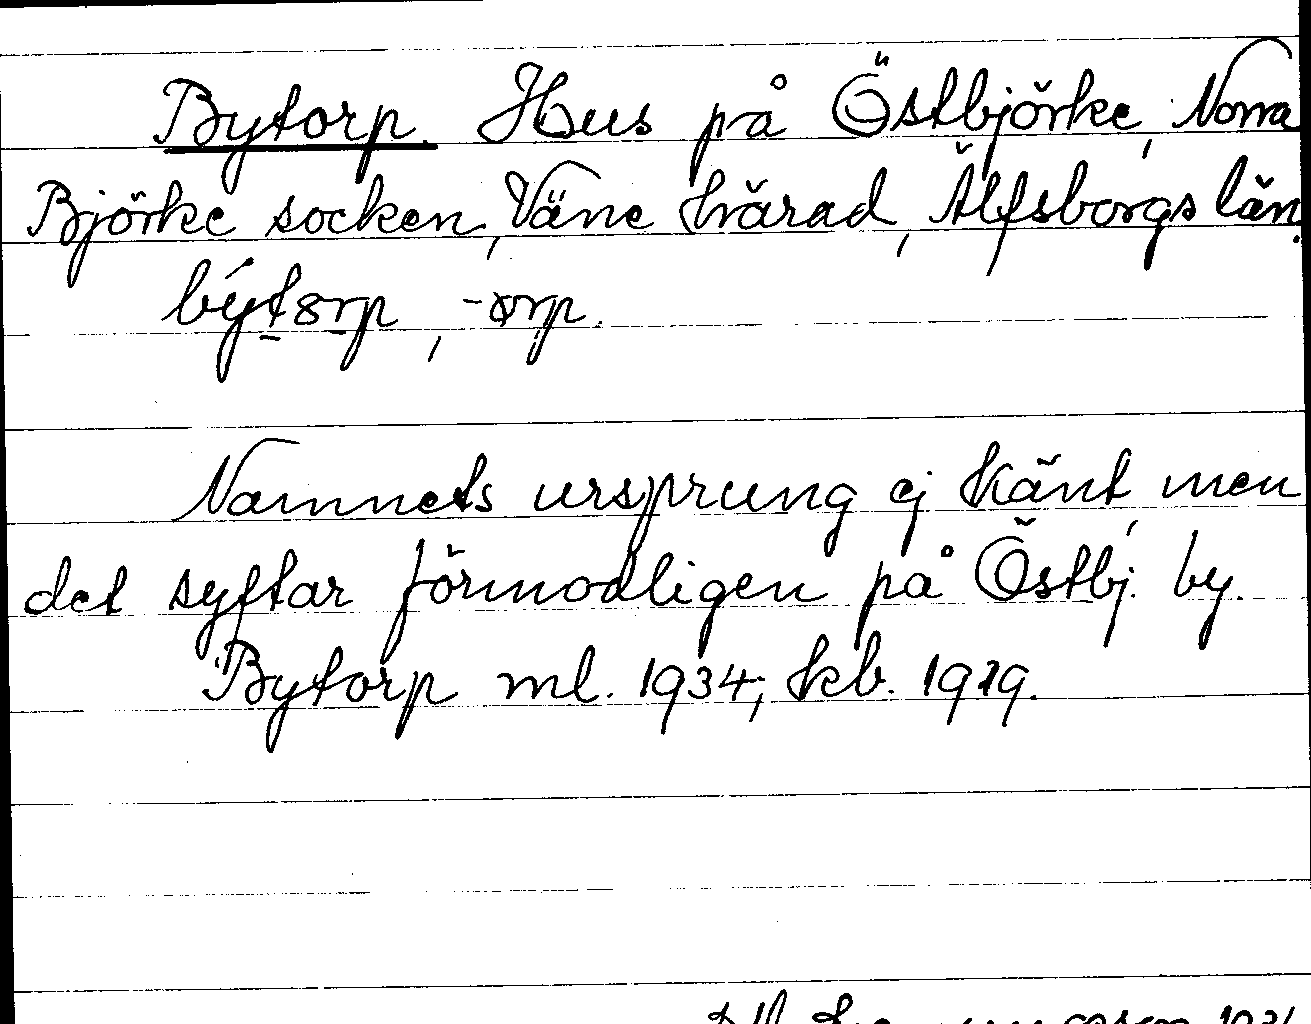 Bytorp. Hus på Östbjörke, Norra
Björke socken, Väne härad, Älfsborgs län.
býtørp, -ørp.
Namnets ursprung ej känt, men
det syftar förmodligen på Östbj. by.
Bytorp ml. 1934; kb. 1919.